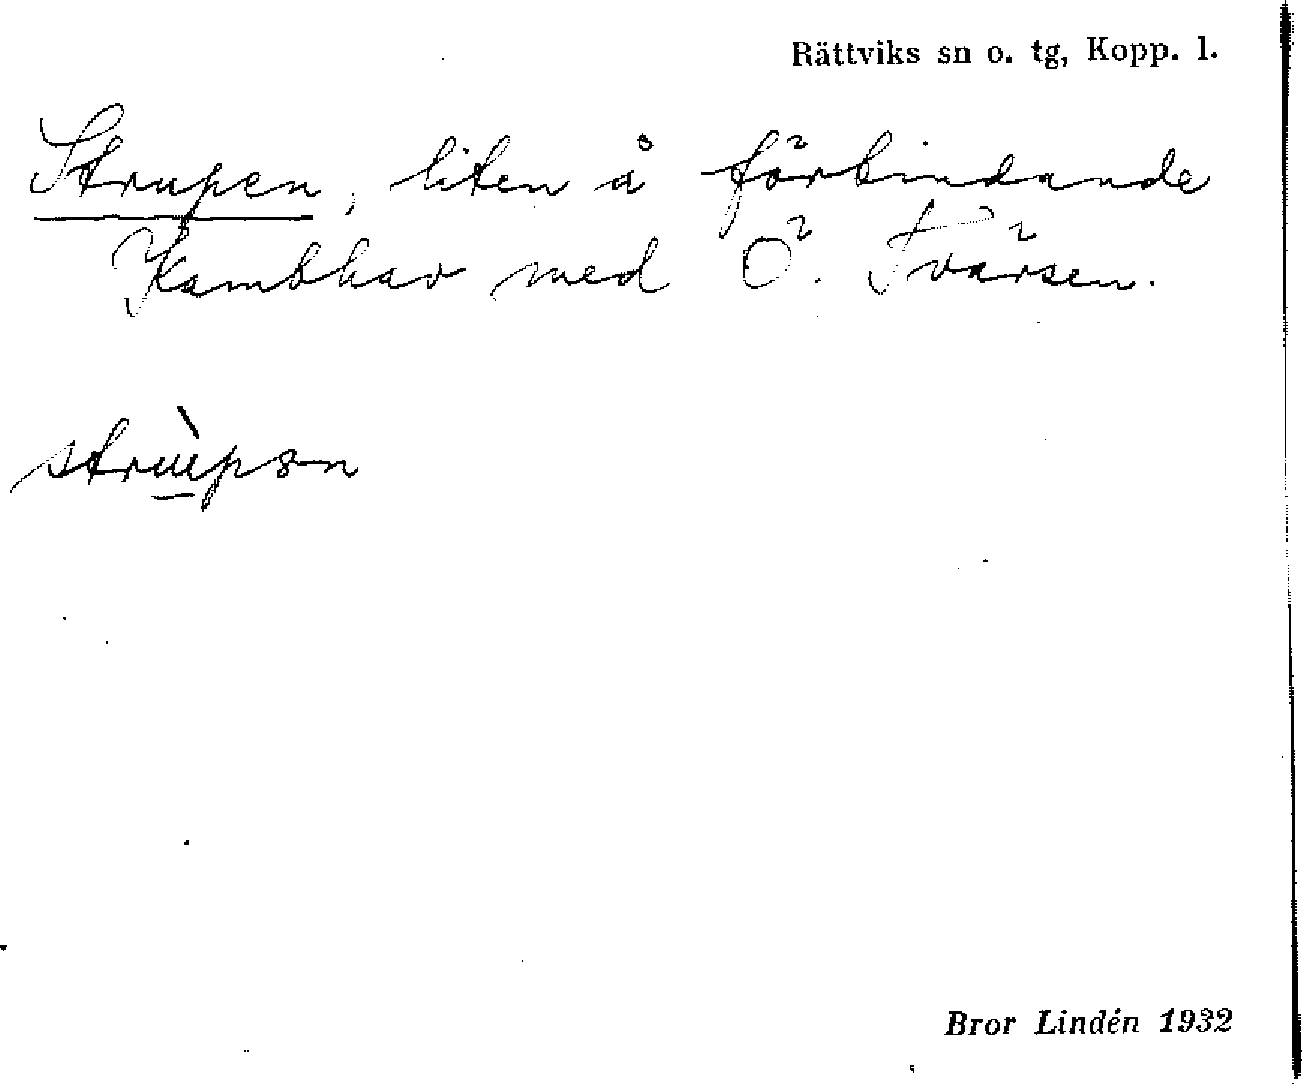 Rättviks sn o. tg, Kopp. l.
Strupen, liten å förbindande
med Ö. Tvärsen.
Bror Lindén 1932